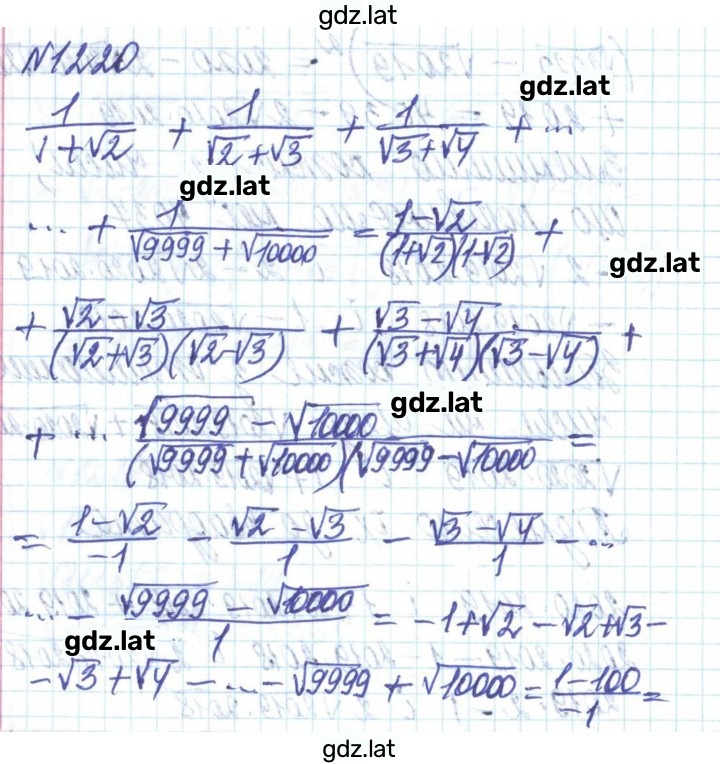 gdz.lat
N1220
gdz.lat
1/(√+√2) + 1/(√2+√3) + 1/(√3+√4) + ...
gdz.lat
... + 1/(√9999 + √10000) = (1-√2)/((1+√2)(1-√2)) +
gdz.lat
+ (√2-√3)/((√2+√3)(√2-√3)) + (√3-√4)/((√3+√4)(√3-√4)) +
gdz.lat
+ ... (√9999 - √10000)/((√9999+√10000)(√9999-√10000) =
= (1-√2)/(-1) - (√2-√3)/1 - (√3-√4)/1 - ...
... - (√9999 - √10000)/1 = -1+√2-√2+√3-
gdz.lat
-√3+√4-...-√9999+√10000 = (1-100)/(-1) =
gdz.lat